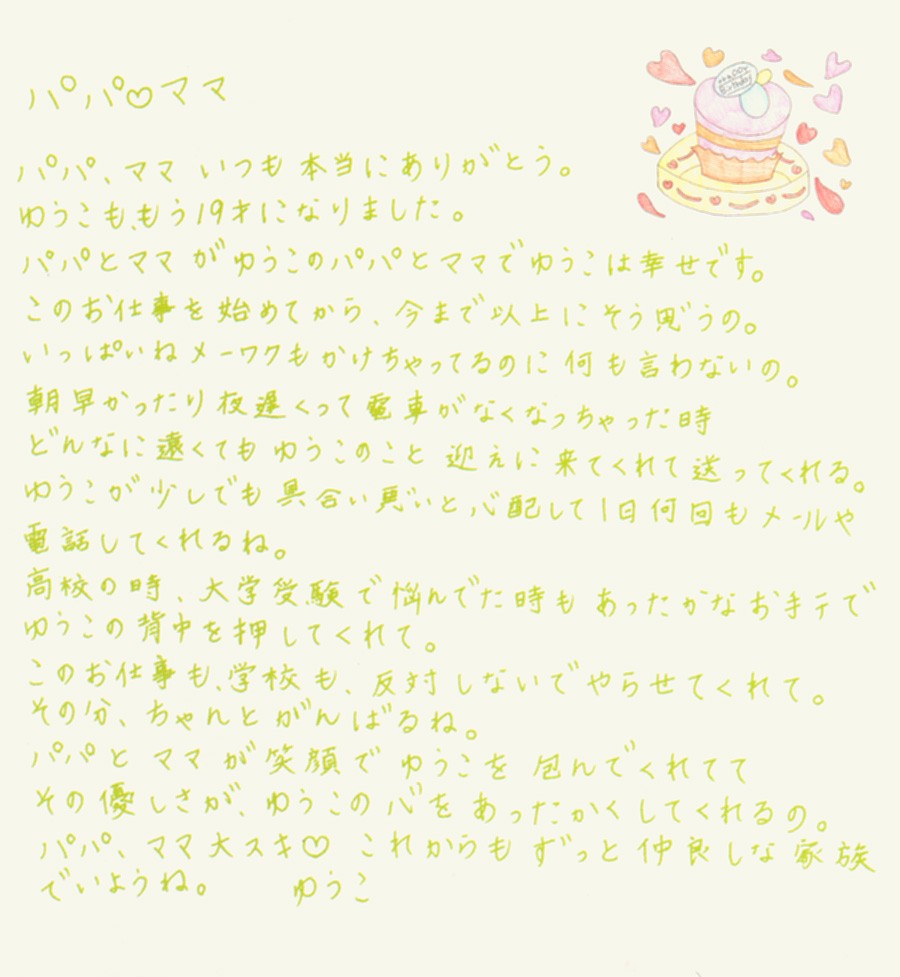 パパ♡ママ
Happy Birthday
パパ、ママ いつも本当にありがとう。
ゆうこも、もう19才になりました。
パパとママがゆうこのパパとママでゆうこは幸せです。
このお仕事を始めてから、今まで以上にそう思うの。
いっぱいねメーワクもかけちゃってるのに何も言わないの。
朝早かったり夜遅くって電車がなくなっちゃった時
どんなに遠くてもゆうこのこと迎えに来てくれて送ってくれる。
ゆうこが少しでも具合い悪いと心配して1日何回もメールや
電話してくれるね。
高校の時、大学受験で悩んでた時もあったかなお手テで
ゆうこの背中を押してくれて。
このお仕事も、学校も、反対しないでやらせてくれて。
その分、ちゃんとがんばるね。
パパとママが笑顔でゆうこを包んでくれてて
その優しさが、ゆうこの心をあったかくしてくれるの。
パパ、ママ大スキ♡ これからもずっと仲良しな家族
でいようね。 ゆうこ